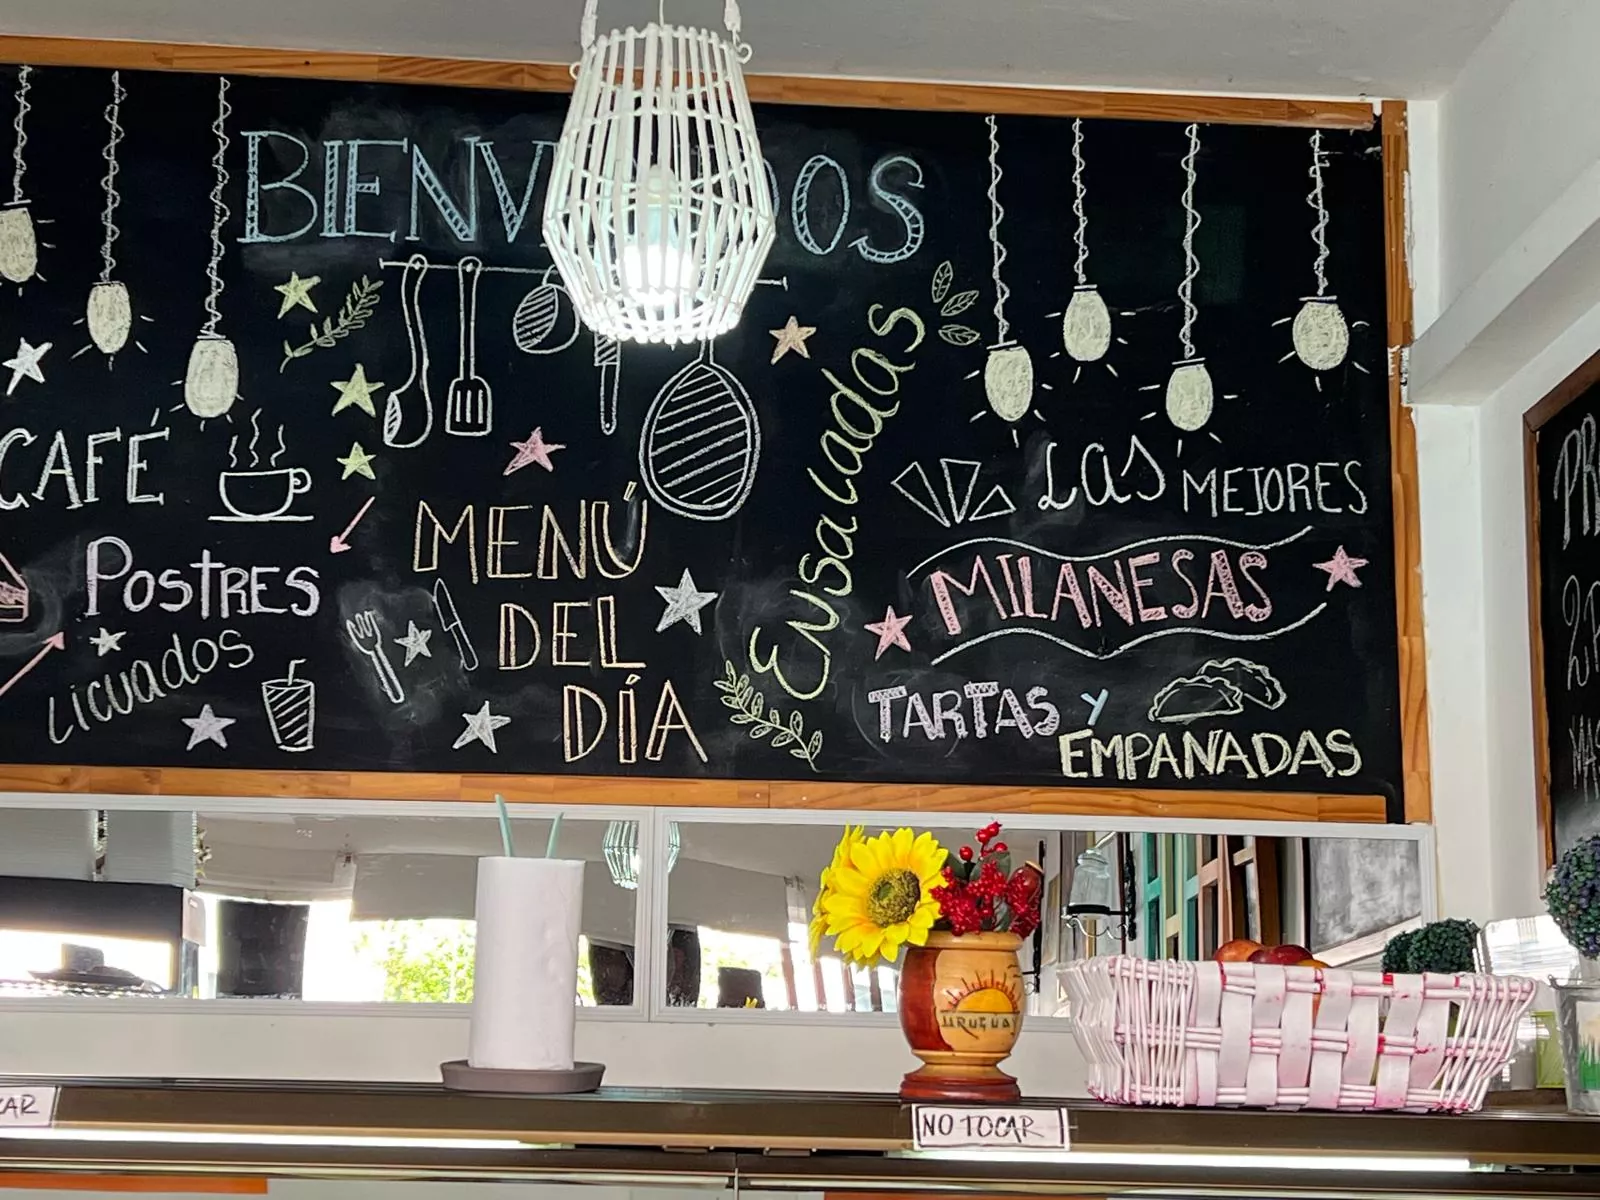 BIENV DOS
CAFÉ
POSTRES
Licuados
MENÚ
DEL
DÍA
Ensaladas
LAS MEJORES
MILANESAS
TARTAS Y
EMPANADAS
URUGUAY
NO TOCAR